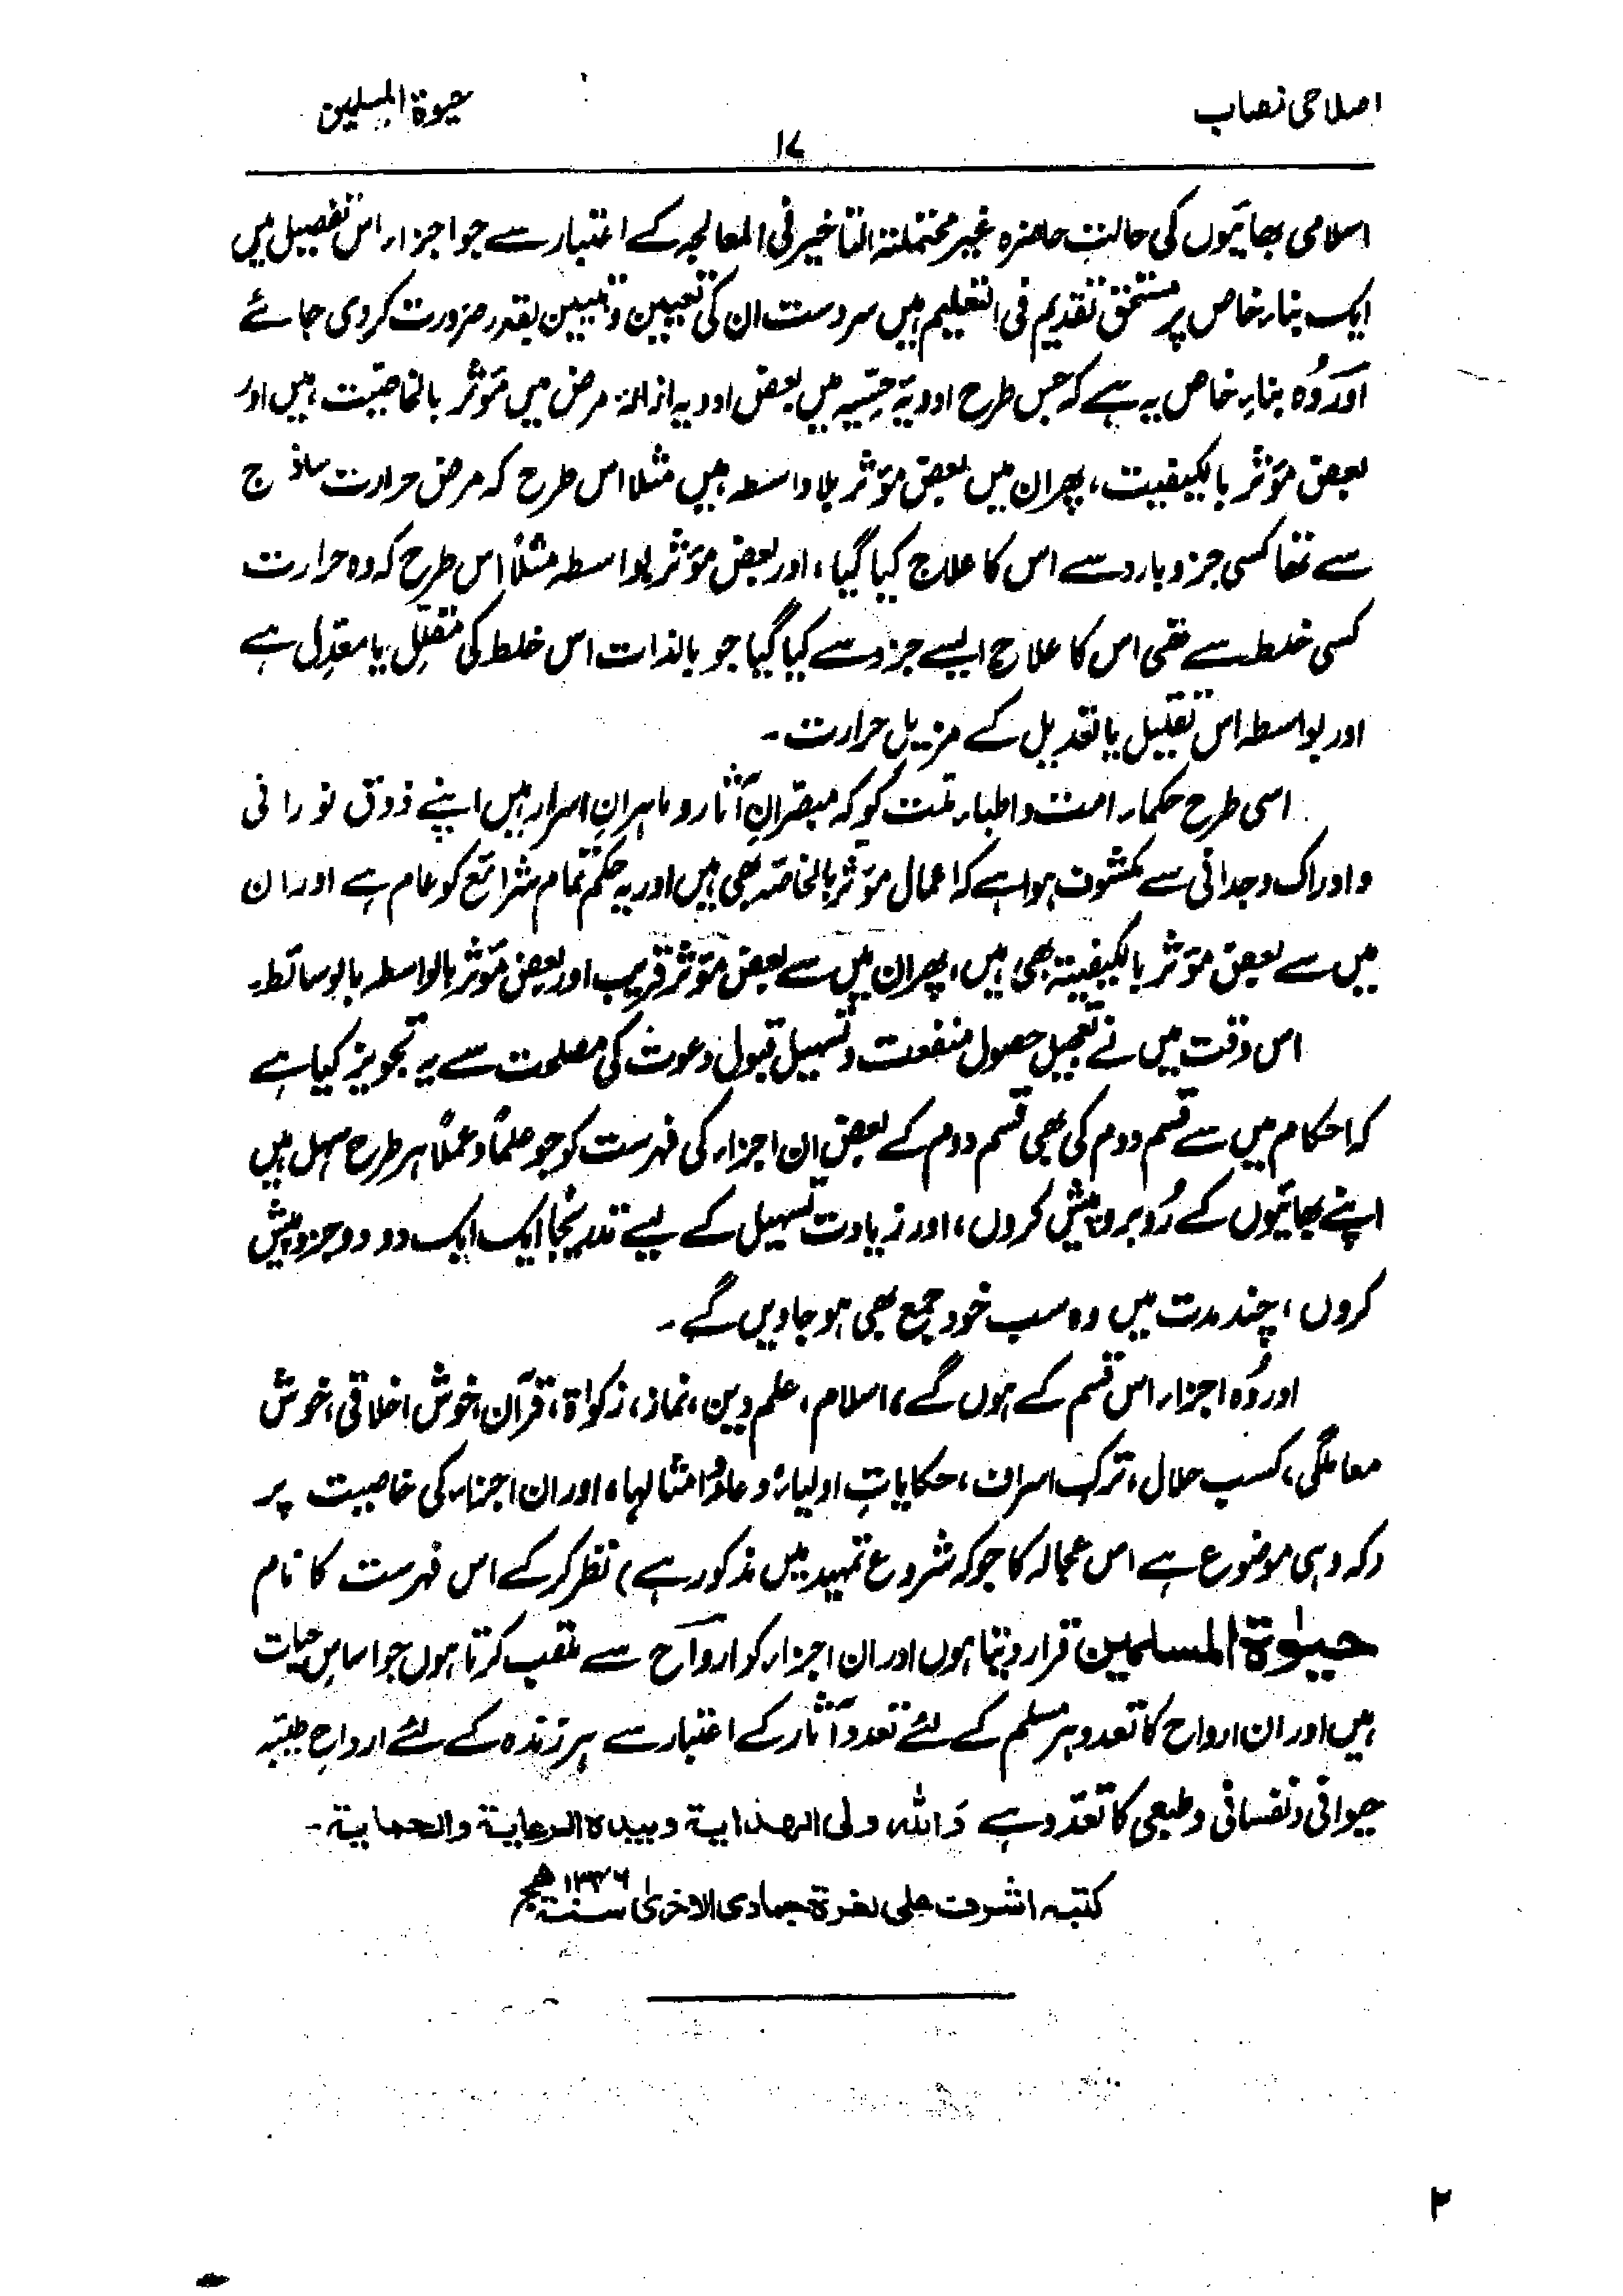 اصلاحی نصاب
حیوۃ المسلمین
۱۷
اسلامی بھائیوں کی حالتِ حاضرہ غیر محتملۃ التاخیر فی المعالجہ کے اعتبار سے جو اجزاء اس تفصیل میں
ایک بناء خاص پر مستحق تقدیم فی التعلیم ہیں سردست ان کی تعیین و تبیین بقدر ضرورت کر دی جائے
اور وُہ بناءِ خاص یہ ہے کہ جس طرح ادویۂ حِسّیہ میں بعض ادویہ ازالۂ مرض میں مؤثر بالخاصیّت ہیں اور
بعض مؤثر بالکیفیت، پھر ان میں بعض مؤثر بلا واسطہ ہیں مثلا اس طرح کہ مرض حرارت ساذج
سے تھا کسی جزو بارد سے اس کا علاج کیا گیا، اور بعض مؤثر بواسطہ مثلاً اس طرح کہ وہ حرارت
کسی خلط سے تھی اس کا علاج ایسے جزو سے کیا گیا جو بالذات اس خلط کی مقلِّل یا معدِّل ہے
اور بواسطہ اس تقلیل یا تعدیل کے مزیل حرارت۔
اسی طرح حکماء امت و اطباء ملت کو کہ مبصّرانِ آثار و ماہرانِ اسرار ہیں اپنے ذوق نورانی
و ادراک وجدانی سے مکشوف ہوا ہے کہ اعمال مؤثر بالخاصّہ بھی ہیں اور یہ حکم تمام شرائع کو عام ہے اور ان
میں سے بعض مؤثر بالکیفیۃ بھی ہیں، پھر ان میں سے بعض مؤثر قریب اور بعض مؤثر بالواسطہ یا بوسائط۔
اس وقت میں نے تعجیل حصول منفعت و تسہیل قبول دعوت کی مصلحت سے یہ تجویز کیا ہے
کہ احکام میں سے قسم دوم کی بھی قسم دوم کے بعض ان اجزاء کی فہرست کو جو علماً و عملاً ہر طرح سہل ہیں
اپنے بھائیوں کے رُوبرو پیش کروں، اور زیادت تسہیل کے لیے تدریجاً ایک ایک دو دو جزو پیش
کروں، چند مدت میں وہ سب خود جمع بھی ہو جاویں گے۔
اور وُہ اجزاء اس قسم کے ہوں گے، اسلام، علم دین، نماز، زکوٰۃ، قرآن، خوش اخلاقی، خوش
معاملگی، کسب حلال، ترکِ اسراف، حکایاتِ اولیاء و دعاء و امثالہا، اور ان اجزاء کی خاصیت پر
(کہ وہی موضوع ہے اس عجالہ کا جو کہ شروع تمہید میں مذکور ہے) نظر کر کے اس فہرست کا نام
حیٰوۃ المسلمین قرار دیتا ہوں اور ان اجزاء کو ارواح سے ملقب کرتا ہوں جو اساسِ حیات
ہیں اور ان ارواح کا تعدد ہر مسلم کے لئے تعدد آثار کے اعتبار سے ہر زندہ کے لئے ارواحِ طبیّہ
حیوانی و نفسانی و طبعی کا تعدّد ہے وَاللہ ولی الھدایۃ وبیدہ الرعایۃ والحمایۃ۔
کتبہ اشرف علی لغرۃ جمادی الاخریٰ سنۃ ۱۳۴۶ ھج
۲